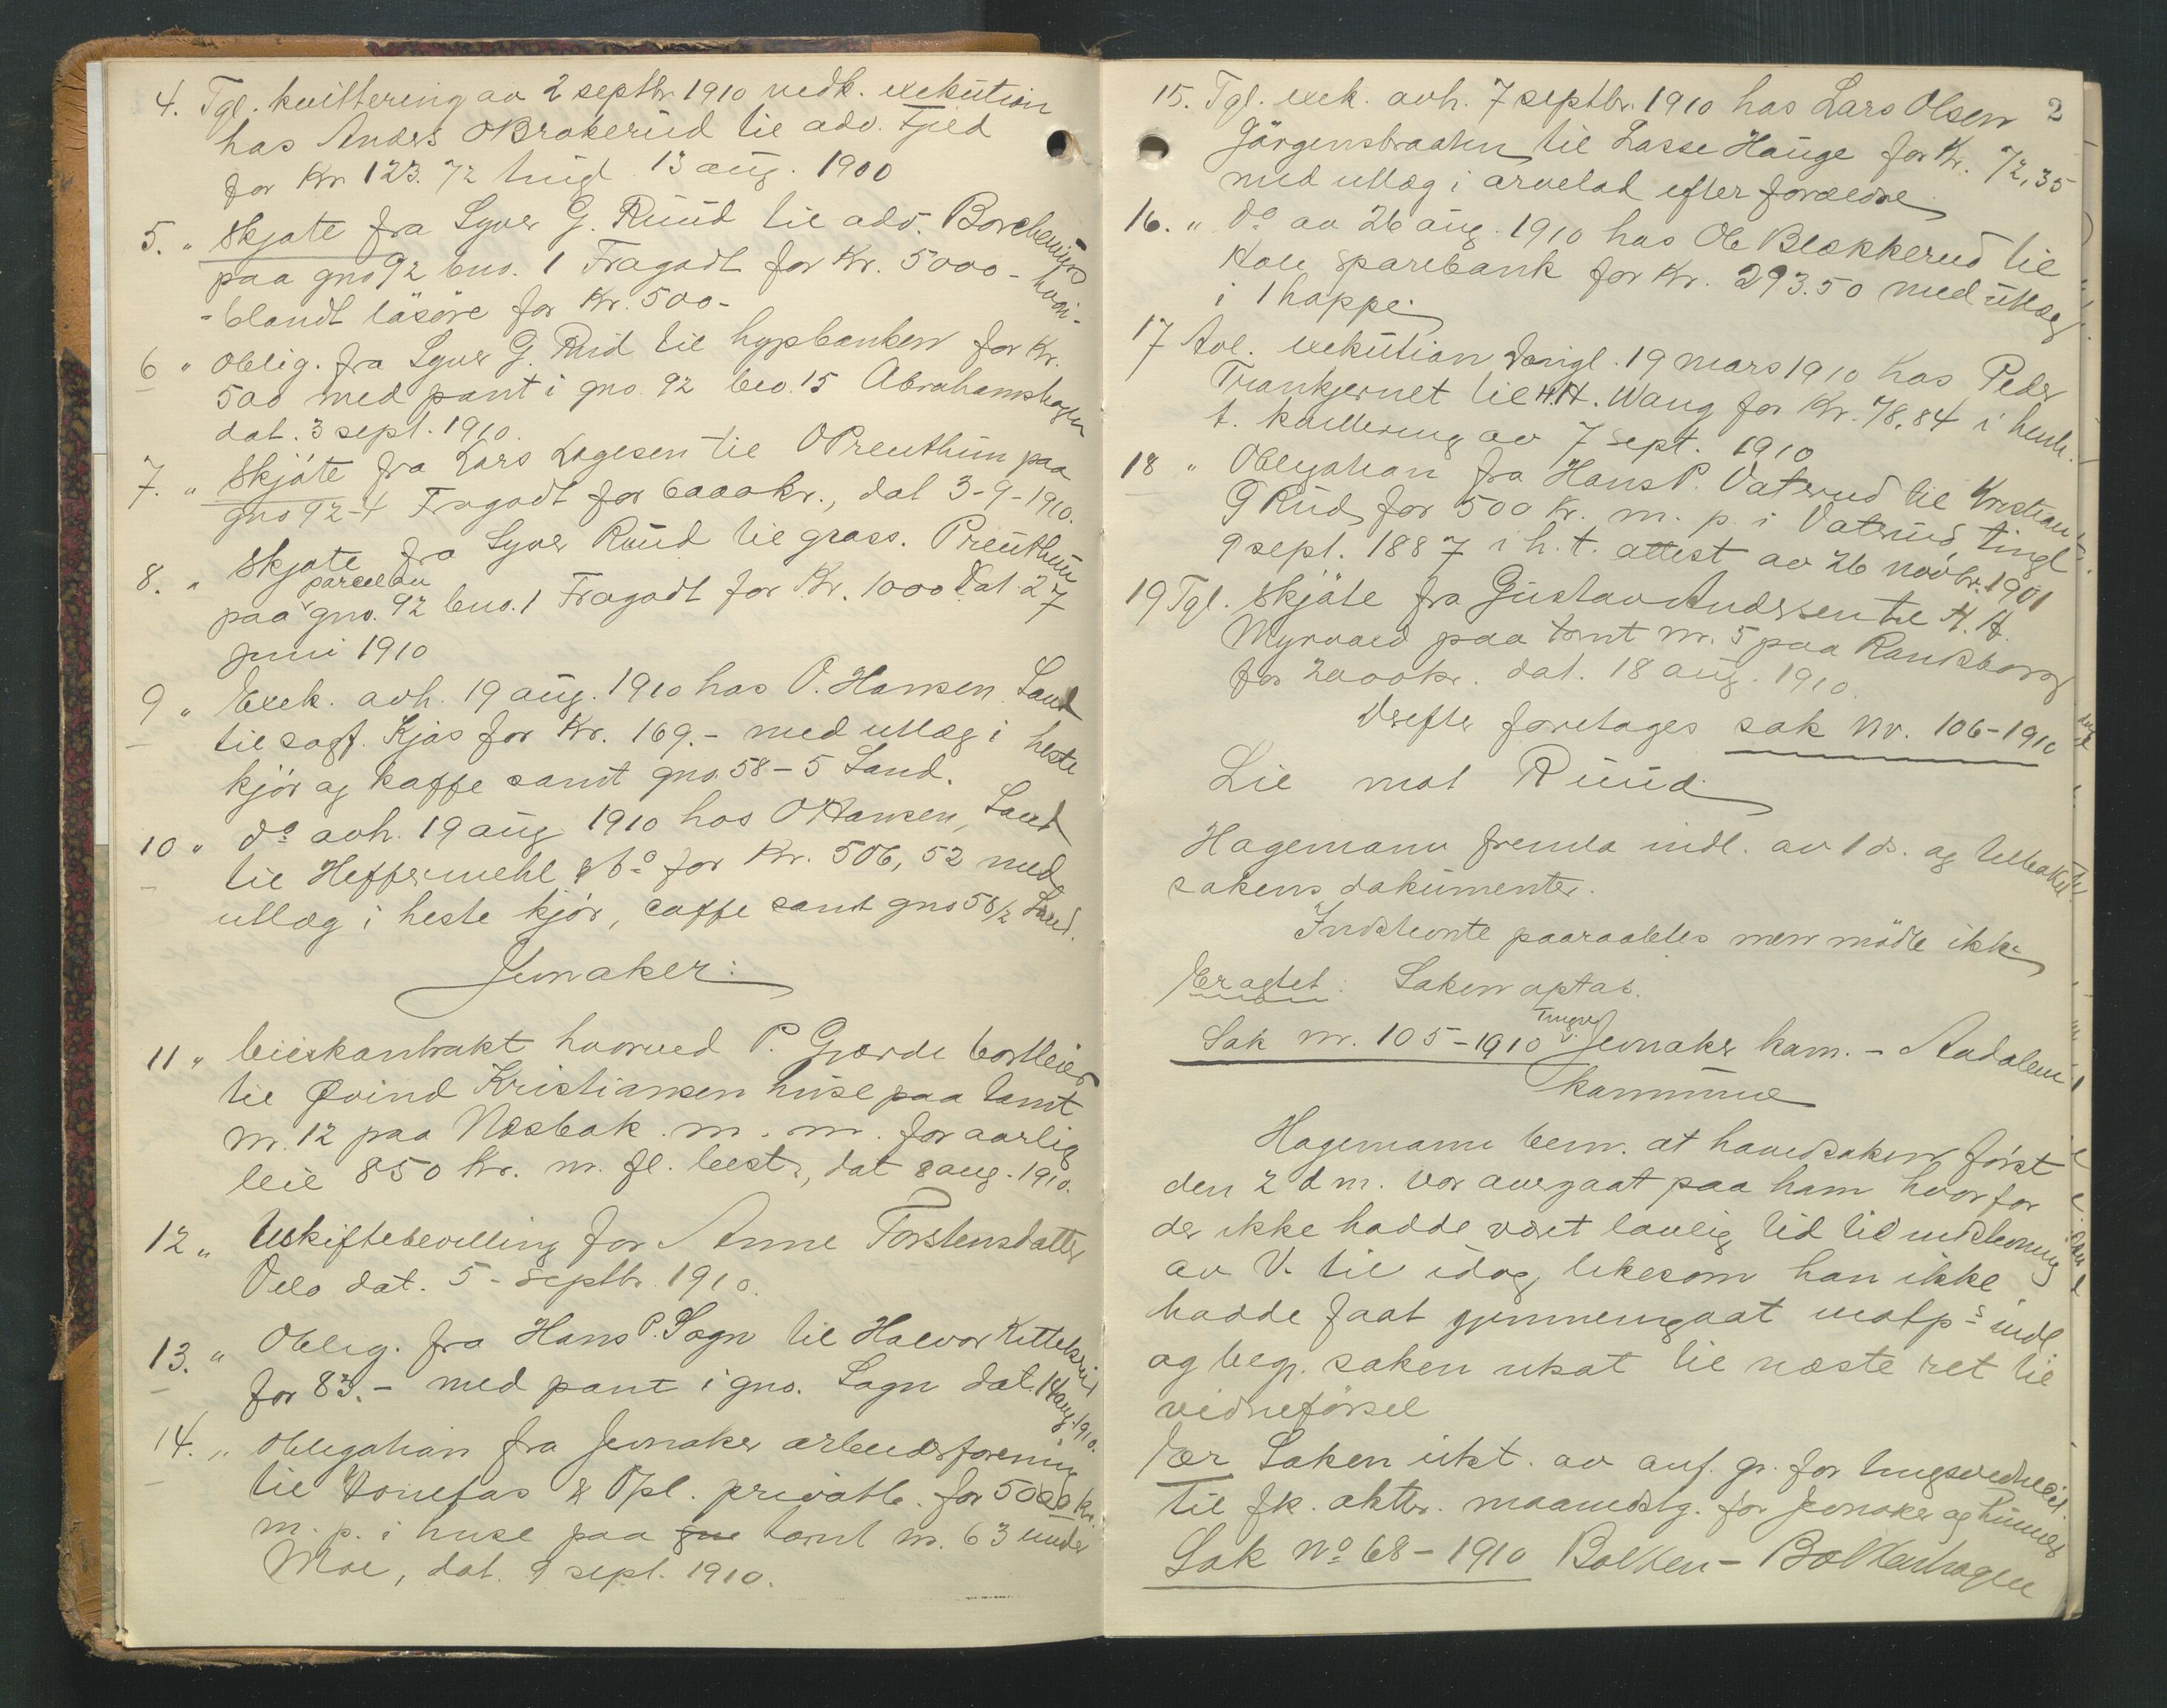 4. Tgl. kvittering av 2 septbr 1910 vedk. exekution
hos Anders O Brakerud til adv. Fjeld
for Kr. 123.72 tingl 13 aug. 1900
5. " Skjøte fra Syver G. Ruud til adv. Borchenius
paa gno 92 bno. 1 Fragodt for Kr. 5000 - hvori-
-blandt løsøre for Kr. 500-
6 " Oblig. fra Syver G. Rud til hypbanken for Kr.
500 med pant i gno. 92 bno. 15 Abrahamshagen
dat. 3 sept. 1910.
7. " Skjøte fra Lars Lagesen til O Preuthun paa
gno 92-4 Fragodt for 6000kr., dat 3-9-1910.
8. " Skjøte fra Syver Ruud til grass. Preuthun
paa parcellen gno. 92 bno. 1 Fragodt for Kr. 1000 Dat 27
juni 1910
9 " Exek. avh. 19 aug. 1910 hos O. Hansen Sand
til sagf. Kjos for Kr. 169.- med utlæg i heste
kjör og kaffe samt gno. 58-5 Sand.
10 " do avh. 19 aug 1910 hos O Hansen, Sand
til Heffermehl & Co for Kr. 506,52 med
utlæg i heste kjör, caffe samt gno 58/2 Sand.
Jevnaker:
11 " leiekontrakt hvorved P. Gjærde bortleier
til Øvind Kristiansen huse paa tomt
nr. 12 paa Næsbak. m. m. for aarlig
leie 850 kr. m. fl. best., dat 8 aug. 1910.
12 " Uskiftebevilling for Anne Torstensdatter
Velo dat. 5- septbr. 1910.
13. " Oblig. fra Hans P. Sogn til Halvor Kittelsrud
for 83.- med pant i gno. Sogn dat. 14 aug. 1910.
14. " Obligation fra Jevnaker arbeiderforening
til Honefos & Opl. privatb. for 5000 kr.
m. p. i huse paa gno tomt nr. 63 under
Moe, dat. 9 sept. 1910.
2
15. Tgl. exek. avh. 7 septbr. 1910 hos Lars Olsen
Jørgensbraaten til Lasse Hauge for Kr. 72,35
med utlæg i arvelod efter forældre
16. " do av 26 aug. 1910 hos Ole Blækkerud til
sparebank for Kr. 293.50 med utlæg
i 1 hoppe.
17 Avl. exekution tingl. 19 mars 1910 hos Peder
Trantjernet til H.H. Wang for Kr. 78,84 i henh.
t. kvittering av 7 sept. 1910
18 " Obligation fra Hans P. Vaterud til Kristian
G Rud for 500 Kr. m. p. i Vaterud tingl
9 sept. 1887 i h. t. attest av 26 novbr. 1901
19 Tgl. skjøte fra Gustav Andersen til H. H.
Myrvold paa tomt nr. 5 paa Randsborg
for 2000kr. dat. 18 aug. 1910.
Derefter foretages sak nr. 106-1910
Lie mot Ruud
Hagemann fremla indl. av 1 ds. og tilbakel.
sakens dokumenter.
Indstevnte paaraabtes men mødte ikke
Eragtet: Saken optas.
Sak nr. 105-1910 Jevnaker kom. - Aadalen
kommune
Hagemann bem. at hovedsaken først
den 2 d m. var overgaat paa ham hvorfor
der ikke hadde været lovlig tid til indstevning
av V. til idag, likesom han ikke
hadde faat gjennemgaat motp s indl
og beg. saken utsat til næste ret til
vidneførsel
Er Saken utst. av anf. gr. for tingsvidnet
til fk. oktbr. maanedstg. for Jevnaker og Lunner
Sak No 68-1910 Bolken - Bolkenhagen